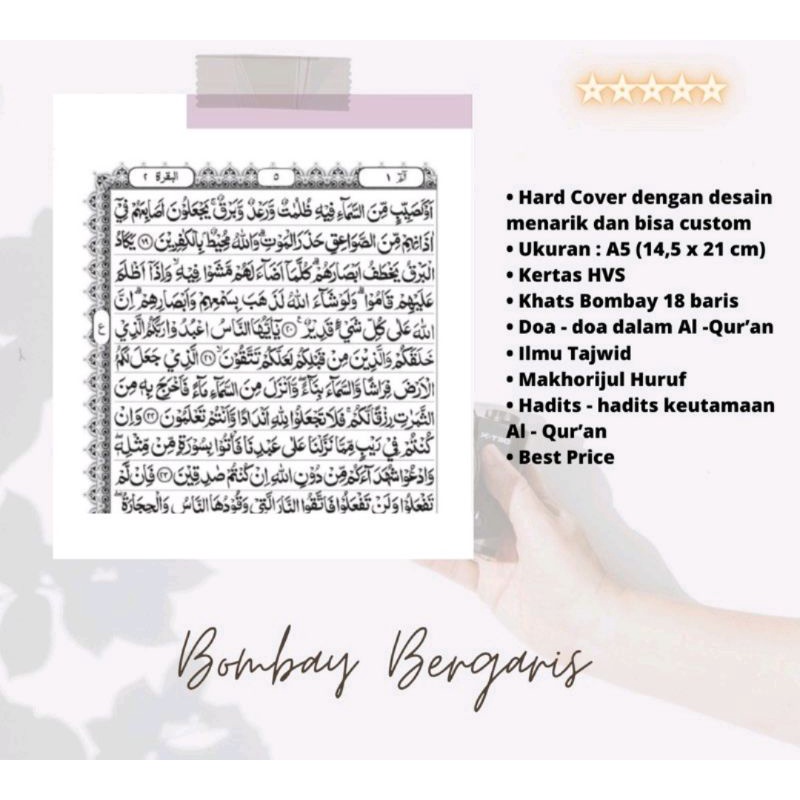 الٓمّٓ ١ ٥ البقرة ٢
اَوْ كَصَيِّبٍ مِّنَ السَّمَآءِ فِيْهِ ظُلُمٰتٌ وَّرَعْدٌ وَّبَرْقٌ ۚ يَجْعَلُوْنَ اَصَابِعَهُمْ فِيْٓ
اٰذَانِهِمْ مِّنَ الصَّوَاعِقِ حَذَرَ الْمَوْتِ ؕ وَاللّٰهُ مُحِيْطٌۢ بِالْكٰفِرِيْنَ ﴿١٩﴾ يَكَادُ
الْبَرْقُ يَخْطَفُ اَبْصَارَهُمْ ؕ كُلَّمَآ اَضَآءَ لَهُمْ مَّشَوْا فِيْهِ ۙ وَاِذَآ اَظْلَمَ
عَلَيْهِمْ قَامُوْا ؕ وَلَوْ شَآءَ اللّٰهُ لَذَهَبَ بِسَمْعِهِمْ وَاَبْصَارِهِمْ ؕ اِنَّ
اللّٰهَ عَلٰى كُلِّ شَيْءٍ قَدِيْرٌ ﴿٢٠﴾ يٰٓاَيُّهَا النَّاسُ اعْبُدُوْا رَبَّكُمُ الَّذِيْ
ع
خَلَقَكُمْ وَالَّذِيْنَ مِنْ قَبْلِكُمْ لَعَلَّكُمْ تَتَّقُوْنَ ﴿٢١﴾ الَّذِيْ جَعَلَ لَكُمُ
الْاَرْضَ فِرَاشًا وَّالسَّمَآءَ بِنَآءً ۪ وَّاَنْزَلَ مِنَ السَّمَآءِ مَآءً فَاَخْرَجَ بِهٖ مِنَ
الثَّمَرٰتِ رِزْقًا لَّكُمْ ۚ فَلَا تَجْعَلُوْا لِلّٰهِ اَنْدَادًا وَّاَنْتُمْ تَعْلَمُوْنَ ﴿٢٢﴾ وَاِنْ
كُنْتُمْ فِيْ رَيْبٍ مِّمَّا نَزَّلْنَا عَلٰى عَبْدِنَا فَاْتُوْا بِسُوْرَةٍ مِّنْ مِّثْلِهٖ ۪
وَادْعُوْا شُهَدَآءَكُمْ مِّنْ دُوْنِ اللّٰهِ اِنْ كُنْتُمْ صٰدِقِيْنَ ﴿٢٣﴾ فَاِنْ لَّمْ
تَفْعَلُوْا وَلَنْ تَفْعَلُوْا فَاتَّقُوا النَّارَ الَّتِيْ وَقُوْدُهَا النَّاسُ وَالْحِجَارَةُ ۖ
• Hard Cover dengan desain
menarik dan bisa custom
• Ukuran : A5 (14,5 x 21 cm)
• Kertas HVS
• Khats Bombay 18 baris
• Doa - doa dalam Al -Qur’an
• Ilmu Tajwid
• Makhorijul Huruf
• Hadits - hadits keutamaan
Al - Qur’an
• Best Price
Bombay Bergaris